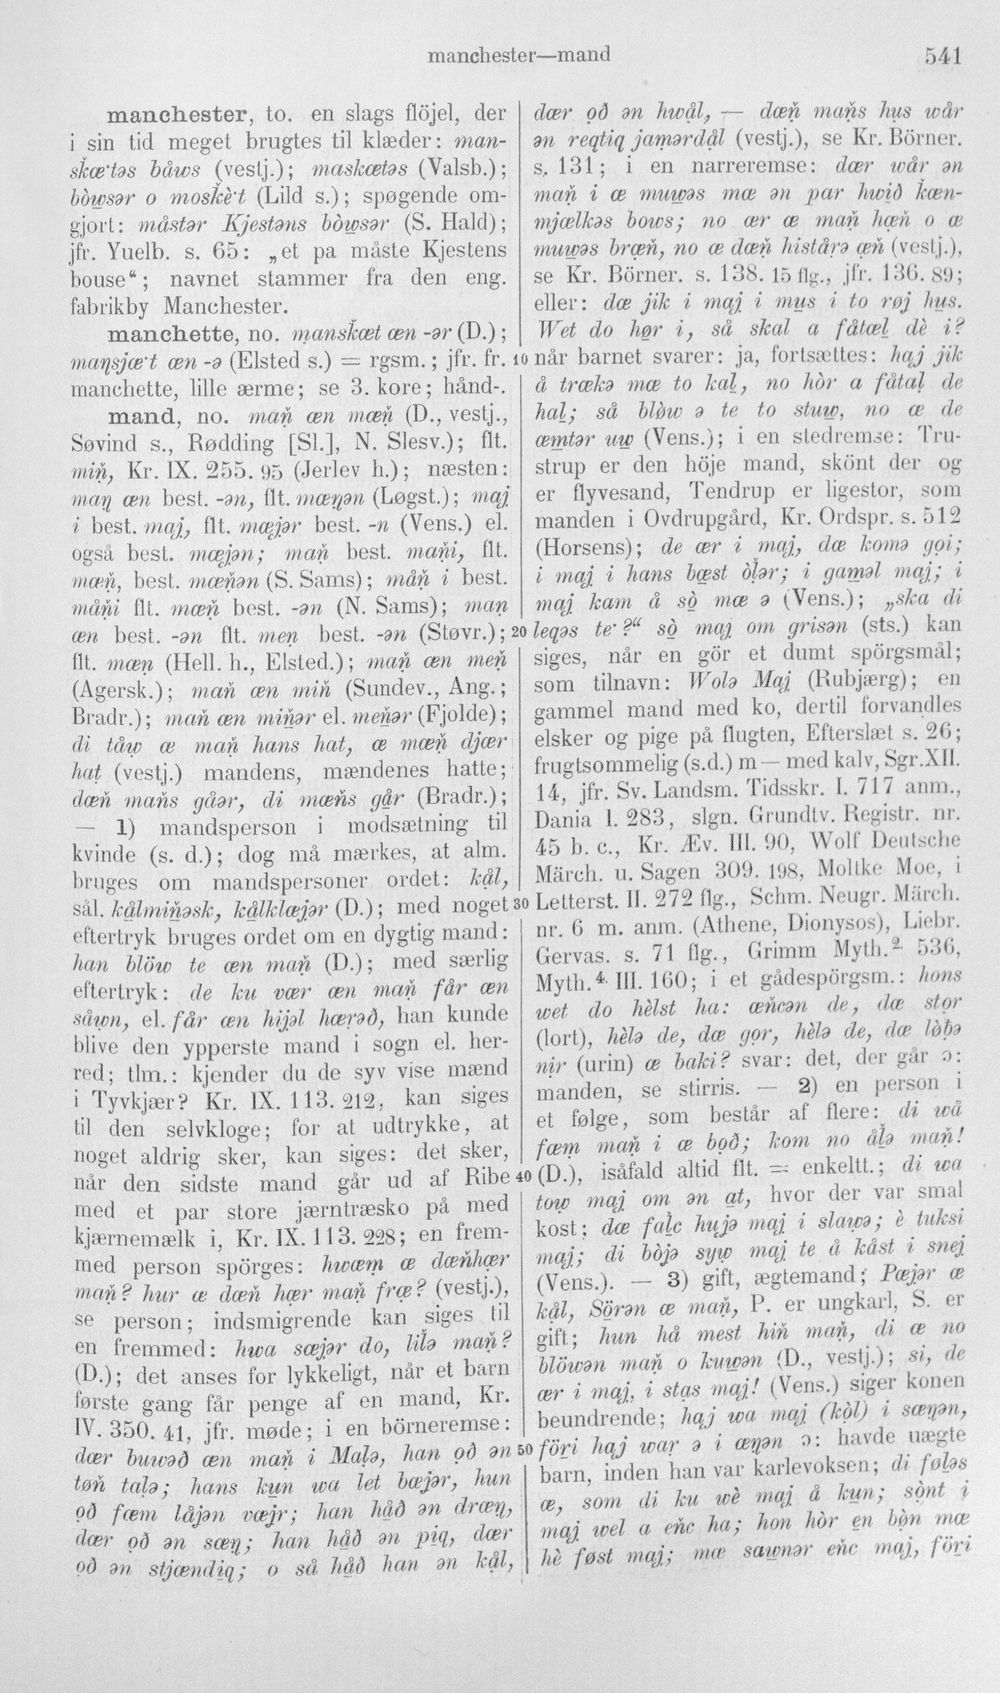 manchester—mand 541
manchester, to. en slags flöjel, der
i sin tid meget brugtes til klæder: man-
skæ·təs båws (vestj.); maskætəs (Valsb.);
bòwsər o moskè't (Lild s.); spøgende om-
gjort: måstər Kjestəns bòwsər (S. Hald);
jfr. Yuelb. s. 65: „et pa måste Kjestens
bouse“; navnet stammer fra den eng.
fabrikby Manchester.
manchette, no. manskæt æn -ər (D.);
maŋsjæ·t æn -ə (Elsted s.) = rgsm.; jfr. fr.
manchette, lille ærme; se 3. kore; hånd-.
mand, no. mań æn mæń (D., vestj.,
Søvind s., Rødding [Sl.], N. Slesv.); flt.
miń, Kr. IX. 255. 95 (Jerlev h.); næsten:
maŋ æn best. -ən, flt. mæŋən (Løgst.); maj
i best. maj, flt. mæjər best. -n (Vens.) el.
også best. mæjən; mań best. mańi, flt.
mæń, best. mæńən (S. Sams); måń i best.
måńi flt. mæń best. -ən (N. Sams); maņ
æn best. -ən flt. meņ best. -ən (Støvr.);
flt. mæņ (Hell. h., Elsted.); mań æn meń
(Agersk.); mań æn miń (Sundev., Ang.;
Bradr.); mań æn mińər el. meńər (Fjolde);
di tåw æ mań hans hat, æ mæń djær
hat (vestj.) mandens, mændenes hatte;
dæń mańs gåər, di mæńs går (Bradr.);
— 1) mandsperson i modsætning til
kvinde (s. d.); dog må mærkes, at alm.
bruges om mandspersoner ordet: kål,
sål. kålmińəsk, kålklæjər (D.); med noget
eftertryk bruges ordet om en dygtig mand:
han blöw te æn mań (D.); med særlig
eftertryk: de ku vær æn mań får æn
såwn, el. får æn hijəl hærəð, han kunde
blive den ypperste mand i sogn el. her-
red; tlm.: kjender du de syv vise mænd
i Tyvkjær? Kr. IX. 113. 212, kan siges
til den selvkloge; for at udtrykke, at
noget aldrig sker, kan siges: det sker,
når den sidste mand går ud af Ribe
med et par store jærntræsko på med
kjærnemælk i, Kr. IX. 113. 228; en frem-
med person spörges: hwæm æ dæńhær
mań? hur æ dæń hær mań fræ? (vestj.),
se person; indsmigrende kan siges til
en fremmed: hwa sæjər do, lilə mań?
(D.); det anses for lykkeligt, når et barn
første gang får penge af en mand, Kr.
IV. 350. 41, jfr. møde; i en börneremse:
dær buwəð æn mań i Malə, han oð ən
tøń talə; hans kun wa let bæjər, hun
oð fæm låjən væjr; han håð ən dræŋ,
dær oð ən sæŋ; han håð ən piq, dær
oð ən stjændiq; o så håð han ən kål,
dær oð ən hwål, — dæń mańs hus wår
ən reqtiq jamərdål (vestj.), se Kr. Börner.
s. 131; i en narreremse: dær wår ən
mań i æ muwəs mæ ən par hwið kæn-
mjælkəs bows; no ær æ mań hæń o æ
muwəs bræń, no æ dæń histårə æń (vestj.),
se Kr. Börner. s. 138. 15 flg., jfr. 136. 89;
eller: dæ jik i maj i mus i to røj hus.
Wet do hør i, så skal a fåtæl dè i?
10 når barnet svarer: ja, fortsættes: haj jik
å trækə mæ to kal, no hòr a fåtal de
hal; så blòw ə te to stuw, no æ de
æmtər uw (Vens.); i en stedremse: Tru-
strup er den höje mand, skönt der og
er flyvesand, Tendrup er ligestor, som
manden i Ovdrupgård, Kr. Ordspr. s. 512
(Horsens); de ær i maj, dæ komə goi;
i maj i hans bæst òlər; i gaməl maj; i
maj kam å sò mæ ə (Vens.); „ska di
20 leqəs te·?“ sò maj om grisən (sts.) kan
siges, når en gör et dumt spörgsmål;
som tilnavn: Wolə Maj (Rubjærg); en
gammel mand med ko, dertil forvandles
elsker og pige på flugten, Efterslæt s. 26;
frugtsommelig (s.d.) m — med kalv, Sgr.XII.
14, jfr. Sv. Landsm. Tidsskr. I. 717 anm.,
Dania I. 283, slgn. Grundtv. Registr. nr.
45 b. c., Kr. Æv. III. 90, Wolf Deutsche
Märch. u. Sagen 309. 198, Moltke Moe, i
30 Letterst. II. 272 flg., Schm. Neugr. Märch.
nr. 6 m. anm. (Athene, Dionysos), Liebr.
Gervas. s. 71 flg., Grimm Myth.2. 536,
Myth.4. III. 160; i et gådespörgsm.: hons
wet do hèlst ha: æńcən de, dæ stor
(lort), hèlə de, dæ gor, hèlə de, dæ lòbə
nir (urin) æ baki? svar: det, der går ɔ:
manden, se stirris. — 2) en person i
et følge, som består af flere: di wå
fæm mań i æ boð; kom no ålə mań!
40 (D.), isåfald altid flt. = enkeltt.; di wa
tow maj om ən at, hvor der var smal
kost; dæ falc hujə maj i slawə; è tuksi
maj; di bòjə syw maj te å kåst i snej
(Vens.). — 3) gift, ægtemand; Pæjər æ
kål, Sörən æ mań, P. er ungkarl, S. er
gift; hun hå mest hiń mań, di æ no
blöwən mań o kuwən (D., vestj.); si, de
ær i maj, i stas maj! (Vens.) siger konen
beundrende; haj wa maj (kòl) i sæŋən,
50 föri haj war ə i æŋən ɔ: havde uægte
barn, inden han var karlevoksen; di følǝs
æ, som di ku wè maj å kun; sònt i
maj wel a eńc ha; hon hòr en bòn mæ
hè føst maj; mæ sawnər eńc maj, föri